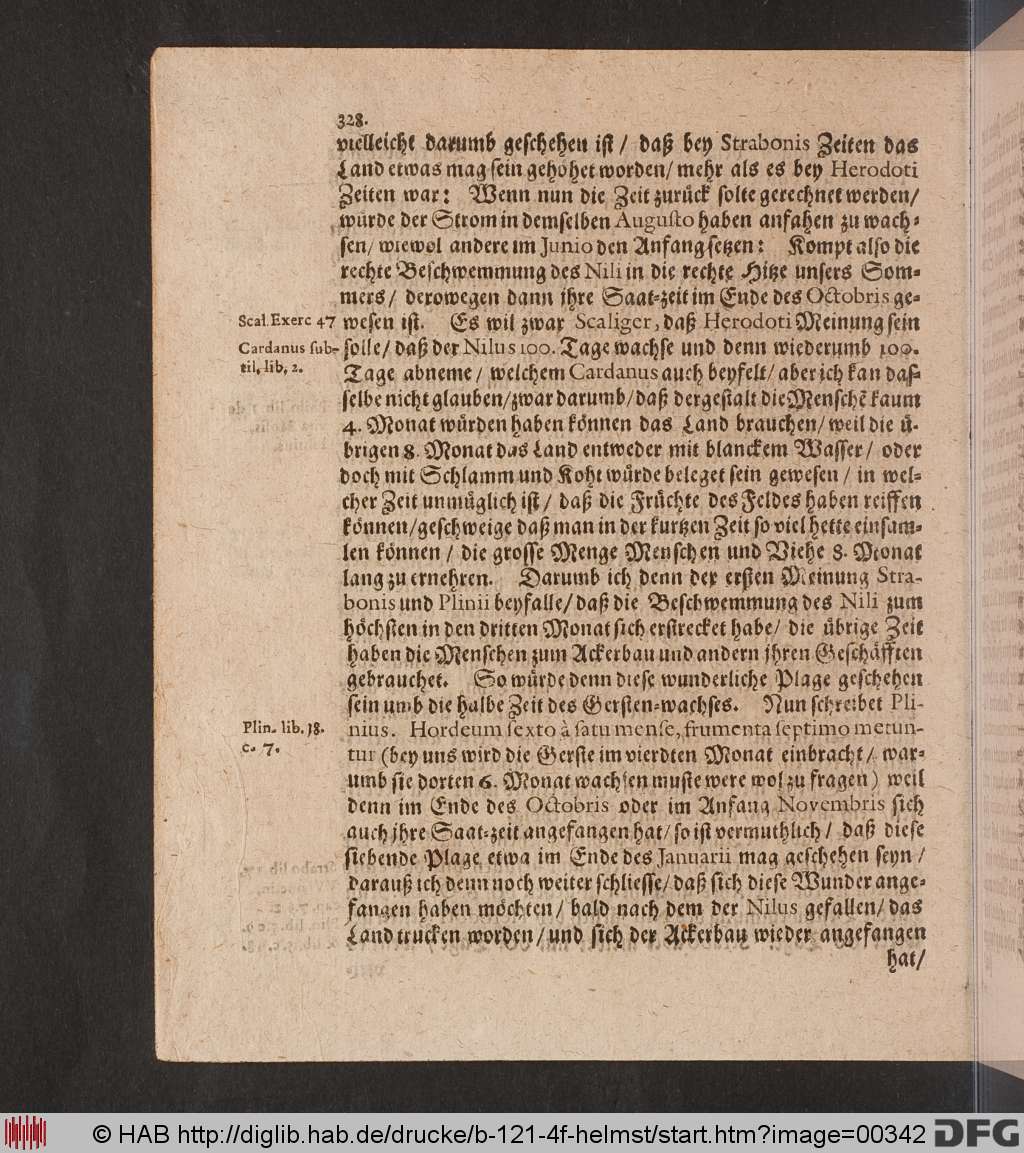 328.
vielleicht darumb geschehen ist / daß bey Strabonis Zeiten das
Land etwas mag sein gehöhet worden / mehr als es bey Herodoti
Zeiten war: Wenn nun die Zeit zurück solte gerechnet werden /
würde der Strom in demselben Augusto haben anfahen zu wach-
sen / wiewol andere im Junio den Anfang setzen: Kompt also die
rechte Beschwemmung des Nili in die rechte Hitze unsers Som-
mers / derowegen dann jhre Saat-zeit im Ende des Octobris ge-
Scal. Exerc 47
wesen ist. Es wil zwar Scaliger, daß Herodoti Meinung sein
Cardanus sub-
til. lib. 2.
solle / daß der Nilus 100. Tage wachse und denn wiederumb 100.
Tage abneme / welchem Cardanus auch beyfelt / aber ich kan das-
selbe nicht glauben / zwar darumb / daß dergestalt die Menschẽ kaum
4. Monat würden haben können das Land brauchen / weil die ü-
brigen 8. Monat das Land entweder mit blanckem Wasser / oder
doch mit Schlamm und Koht würde beleget sein gewesen / in wel-
cher Zeit unmüglich ist / daß die Früchte des Feldes haben reiffen
können / geschweige daß man in der kurtzen Zeit so viel hette einsam-
len können / die grosse Menge Menschen und Viehe 8. Monat
lang zu ernehren. Darumb ich denn der ersten Meinung Stra-
bonis und Plinii beyfalle / daß die Beschwemmung des Nili zum
höchsten in den dritten Monat sich erstrecket habe / die übrige Zeit
haben die Menschen zum Ackerbau und andern jhren Geschäfften
gebrauchet. So würde denn diese wunderliche Plage geschehen
sein umb die halbe Zeit des Gersten-wachses. Nun schreibet Pli-
Plin. lib. 18.
c. 7.
nius. Hordeum sexto à satu mense, frumenta septimo metun-
tur (bey uns wird die Gerste im vierdten Monat einbracht / war-
umb sie dorten 6. Monat wachsen muste were wol zu fragen) weil
denn im Ende des Octobris oder im Anfang Novembris sich
auch jhre Saat-zeit angefangen hat / so ist vermuthlich / daß diese
siebende Plage etwa im Ende des Januarii mag geschehen seyn /
darauß ich denn noch weiter schliesse / daß sich diese Wunder ange-
fangen haben möchten / bald nach dem der Nilus gefallen / das
Land trucken worden / und sich der Ackerbau wieder angefangen
hat /
© HAB http://diglib.hab.de/drucke/b-121-4f-helmst/start.htm?image=00342
DFG